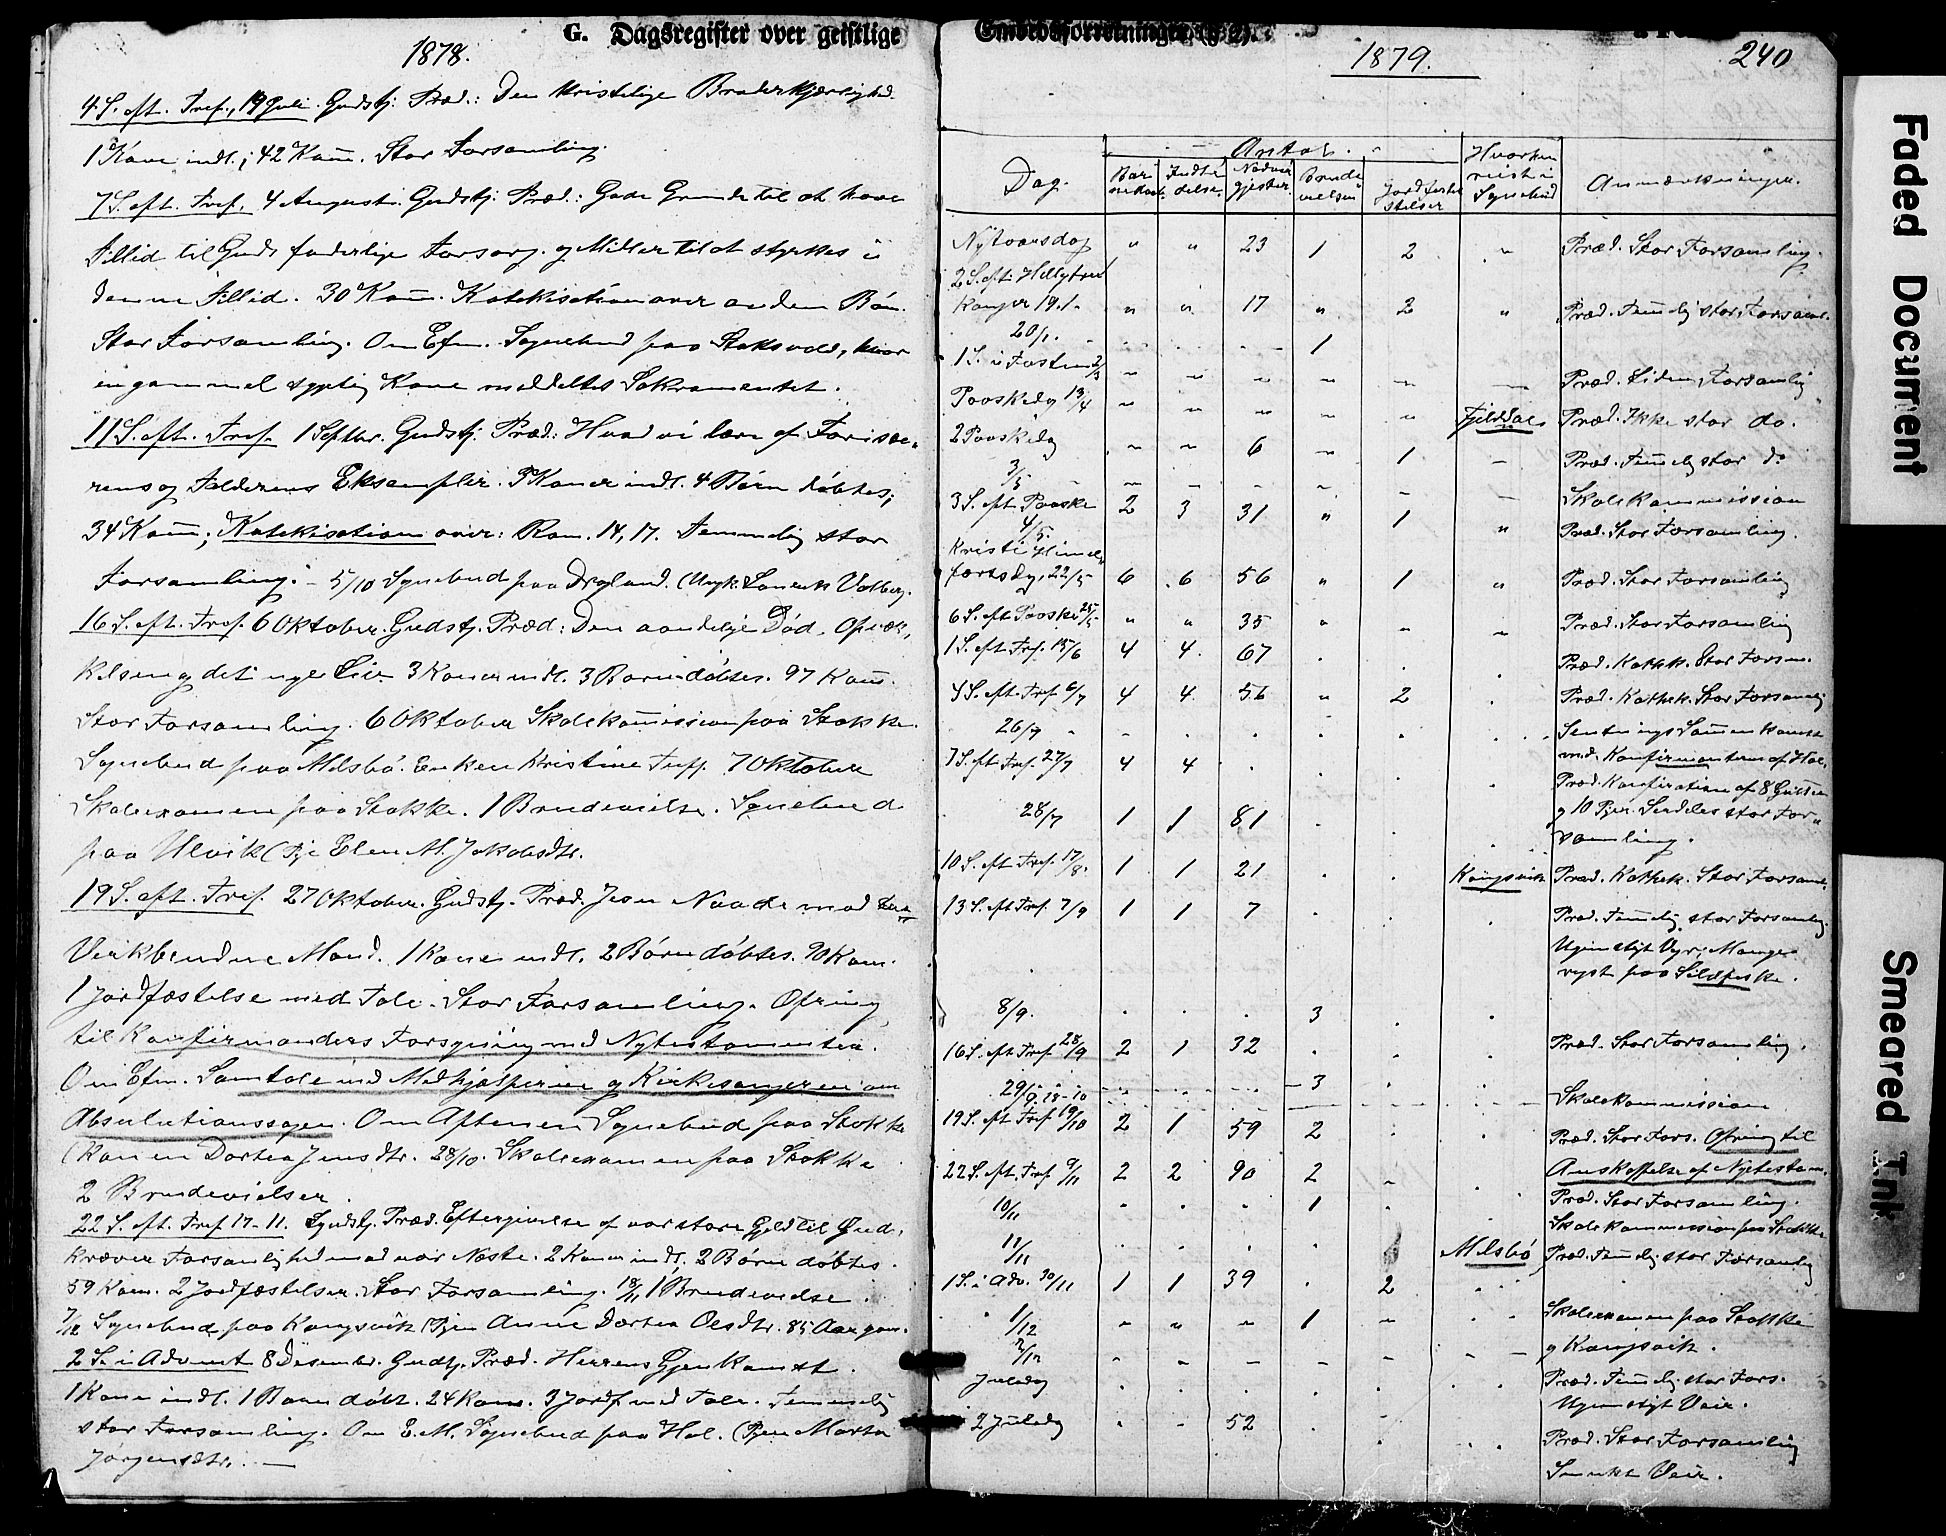 G. Dagsregister over geistlige
1878.
4 S. eft. Tref., 14 Juli. Gudstj. Præd.: Den kristelige Broderkjærlighed.
1 Kone indl.; 42 Kom. Stor Forsamling.
7 S. eft. Tref. 4 August. Gudstj. Præd.: Gode Grunde til at have
Tillid til Guds faderlige Forsorg og Midler til at styrkes i
denne Tillid. 30 Kom. Katekisation over anden Bøn.
Stor Forsamling. Om Efm. Sognebud paa Stoksvold, hvor
en gammel sygelig Kone meddeltes Sakramentet.
11 S. eft. Tref. 1 Septbr. Gudstj. Præd: Hvad vi lære af Farisæ-
rens og Tolderens Eksempler. Koner indl. 4 Børn døbtes;
34 Kom; Katekisation over: Rom. 14, 17. Temmelig stor
Forsamling. – 5/10 Sognebud paa
16 S. eft. Tref. 6 Oktober. Gudstj. Præd: Den aandelige Død, Opvæk-
kelsen og det nye Liv. 3 Koner indl. 3 Børn døbtes. 97 Kom.
Stor Forsamling. 6 Oktober Skolekommission paa Stokke.
Sognebud paa Melsbø. Enken Kristine 7 Oktober
Skoleexamen paa Stokke. 1 Brudevielse. Sognebud
paa Ulvik (Pige Elen M. Jakobsdtr.
19 S. eft. Tref. 27 Oktober. Gudstj. Præd. Jesu Naade mod den
Verkbrudne Mand. 1 Kone indl. 2 Børn døbtes. 90 Kom.
1 Jordfæstelse med Tale. Stor Forsamling. Ofring
til Konfirmanders Forsyning med Nytestamenter.
Om Efm. Samtale med Medhjælperne og Kirkesangeren om
Absolutionssagen. Om Aftenen Sognebud paa Stokke
(Konen Dortea Jensdtr. 28/10. Skoleexamen paa Stokke
2 Brudevielser.
22 S. eft. Tref 17-11. Gudstj. Præd. Eftergivelse af vor store Gjeld til Gud,
kræver Forsonlighed mod vor Næste. 2 Koner indl, 2 Børn døbtes.
59 Kom. 2 Jordfæstelser. Stor Forsamling. 18/11 1 Brudevielse.
7/12 Sognebud paa Kongsvik (Pigen Anne Dortea Olsdtr. 85 Aar gam.
2 S. i Advent 8 Desember. Gudtj. Præd. Herrens Gjenkomst.
1 Kone indl. 1 Barn døbt. 24 Kom. 3 Jordf. med Tale. Temmelig
stor Forsamling. Om E.M. Sognebud paa Hol. (Pigen Marta
Jørgensdtr. —
Embedsforretninger (§ 2).
1879.
240
Dag.
Antal.
Barnedaab.
Indledelse.
Nadvergjester.
Brudevielser
Jordfæstelser
Hvorhen reist i Sognebud
Anmærkninger.
Nytaarsdag " " 23 1 2 " Præd. Stor Forsamling.
2 S. eft. Hellig tre
Konger 19.1. " " 17 " 2 " Præd. Temelig stor Forsaml.
20/1. 1
1 S. i Fasten 2/3 " " " " " " Præd. Liden Forsamling
Paaskedag 13/4 " " " " " Fjelddal Præd. Ikke stor do.
2 Paaskedag " " 6 " 1 " Præd. Temelig stor do
3/5 " " " " " " Skolekommission
3 S. eft Paaske 4/5. 2 3 31 " 1 " Præd. Stor Forsamling.
Kristi Himmel-
fartsdg, 22/5 6 6 56 " 1 " Præd. Stor Forsamling
6 S. eft Paaske 25/5 " " 35 " " " Præd. Stor Forsamling
1 S. eft Tref. 15/6 4 4 67 . . . Præd. Kathek. Stor Forsam.
4 S. eft. Tref 6/7 4 4 56 " 2 . Præd. Kathek. Stor Forsamlig
26/7 . . . . . . Slutnings Sammenkomst
med Konfirmanterne af Hol.
7 S. eft Tref. 27/7 4 4 . . . . Præd. Konfirmation af 8 Gutter
og 10 Piger. Særdeles stor For-
samling.
28/7 1 1 81 . . .
10 S. eft Tref. 17/8. 1 1 21 . . Kongsvik Præd. Kathek. Stor Forsaml.
13 S. eft Tref. 7/9 1 1 7 . . . Præd. Temelig stor Forsamling.
Ugunstigt Veyr; Mange
reist paa Sildfiske.
8/9. . . . 3 . .
16 S. eft Tref 28/9 2 1 32 . . . Præd. Stor Forsamling.
29/9. 3 Skolekommission
19 S. eft Tref 19/10 2 1 59 2 . . Præd. Stor Fors. Ofring til
Anskaffelse af Nytestam.
22 S. eft. Tref 9/11 2 2 90 2 " . Præd. Stor Forsamling.
10/11 . . . 1 . . Skolekommission paa Stokke
11/11 . . . . Melsbø
1 S. i Adv. 30/11 1 1 39 . 2 . Præd. Temelig stor Forsamlig
1/12 " " " 1 " . Skoleexamen paa Stokke
2/12 " " " " " " og Kongsvik.
Juledag . . . . . . Præd. Temelig stor Fors.
Ugunstigt Veir.
2 Juledag . . 52 . . . Præd. Stor Forsamling
Smukt Veir.
Faded Document
Smeared Ink